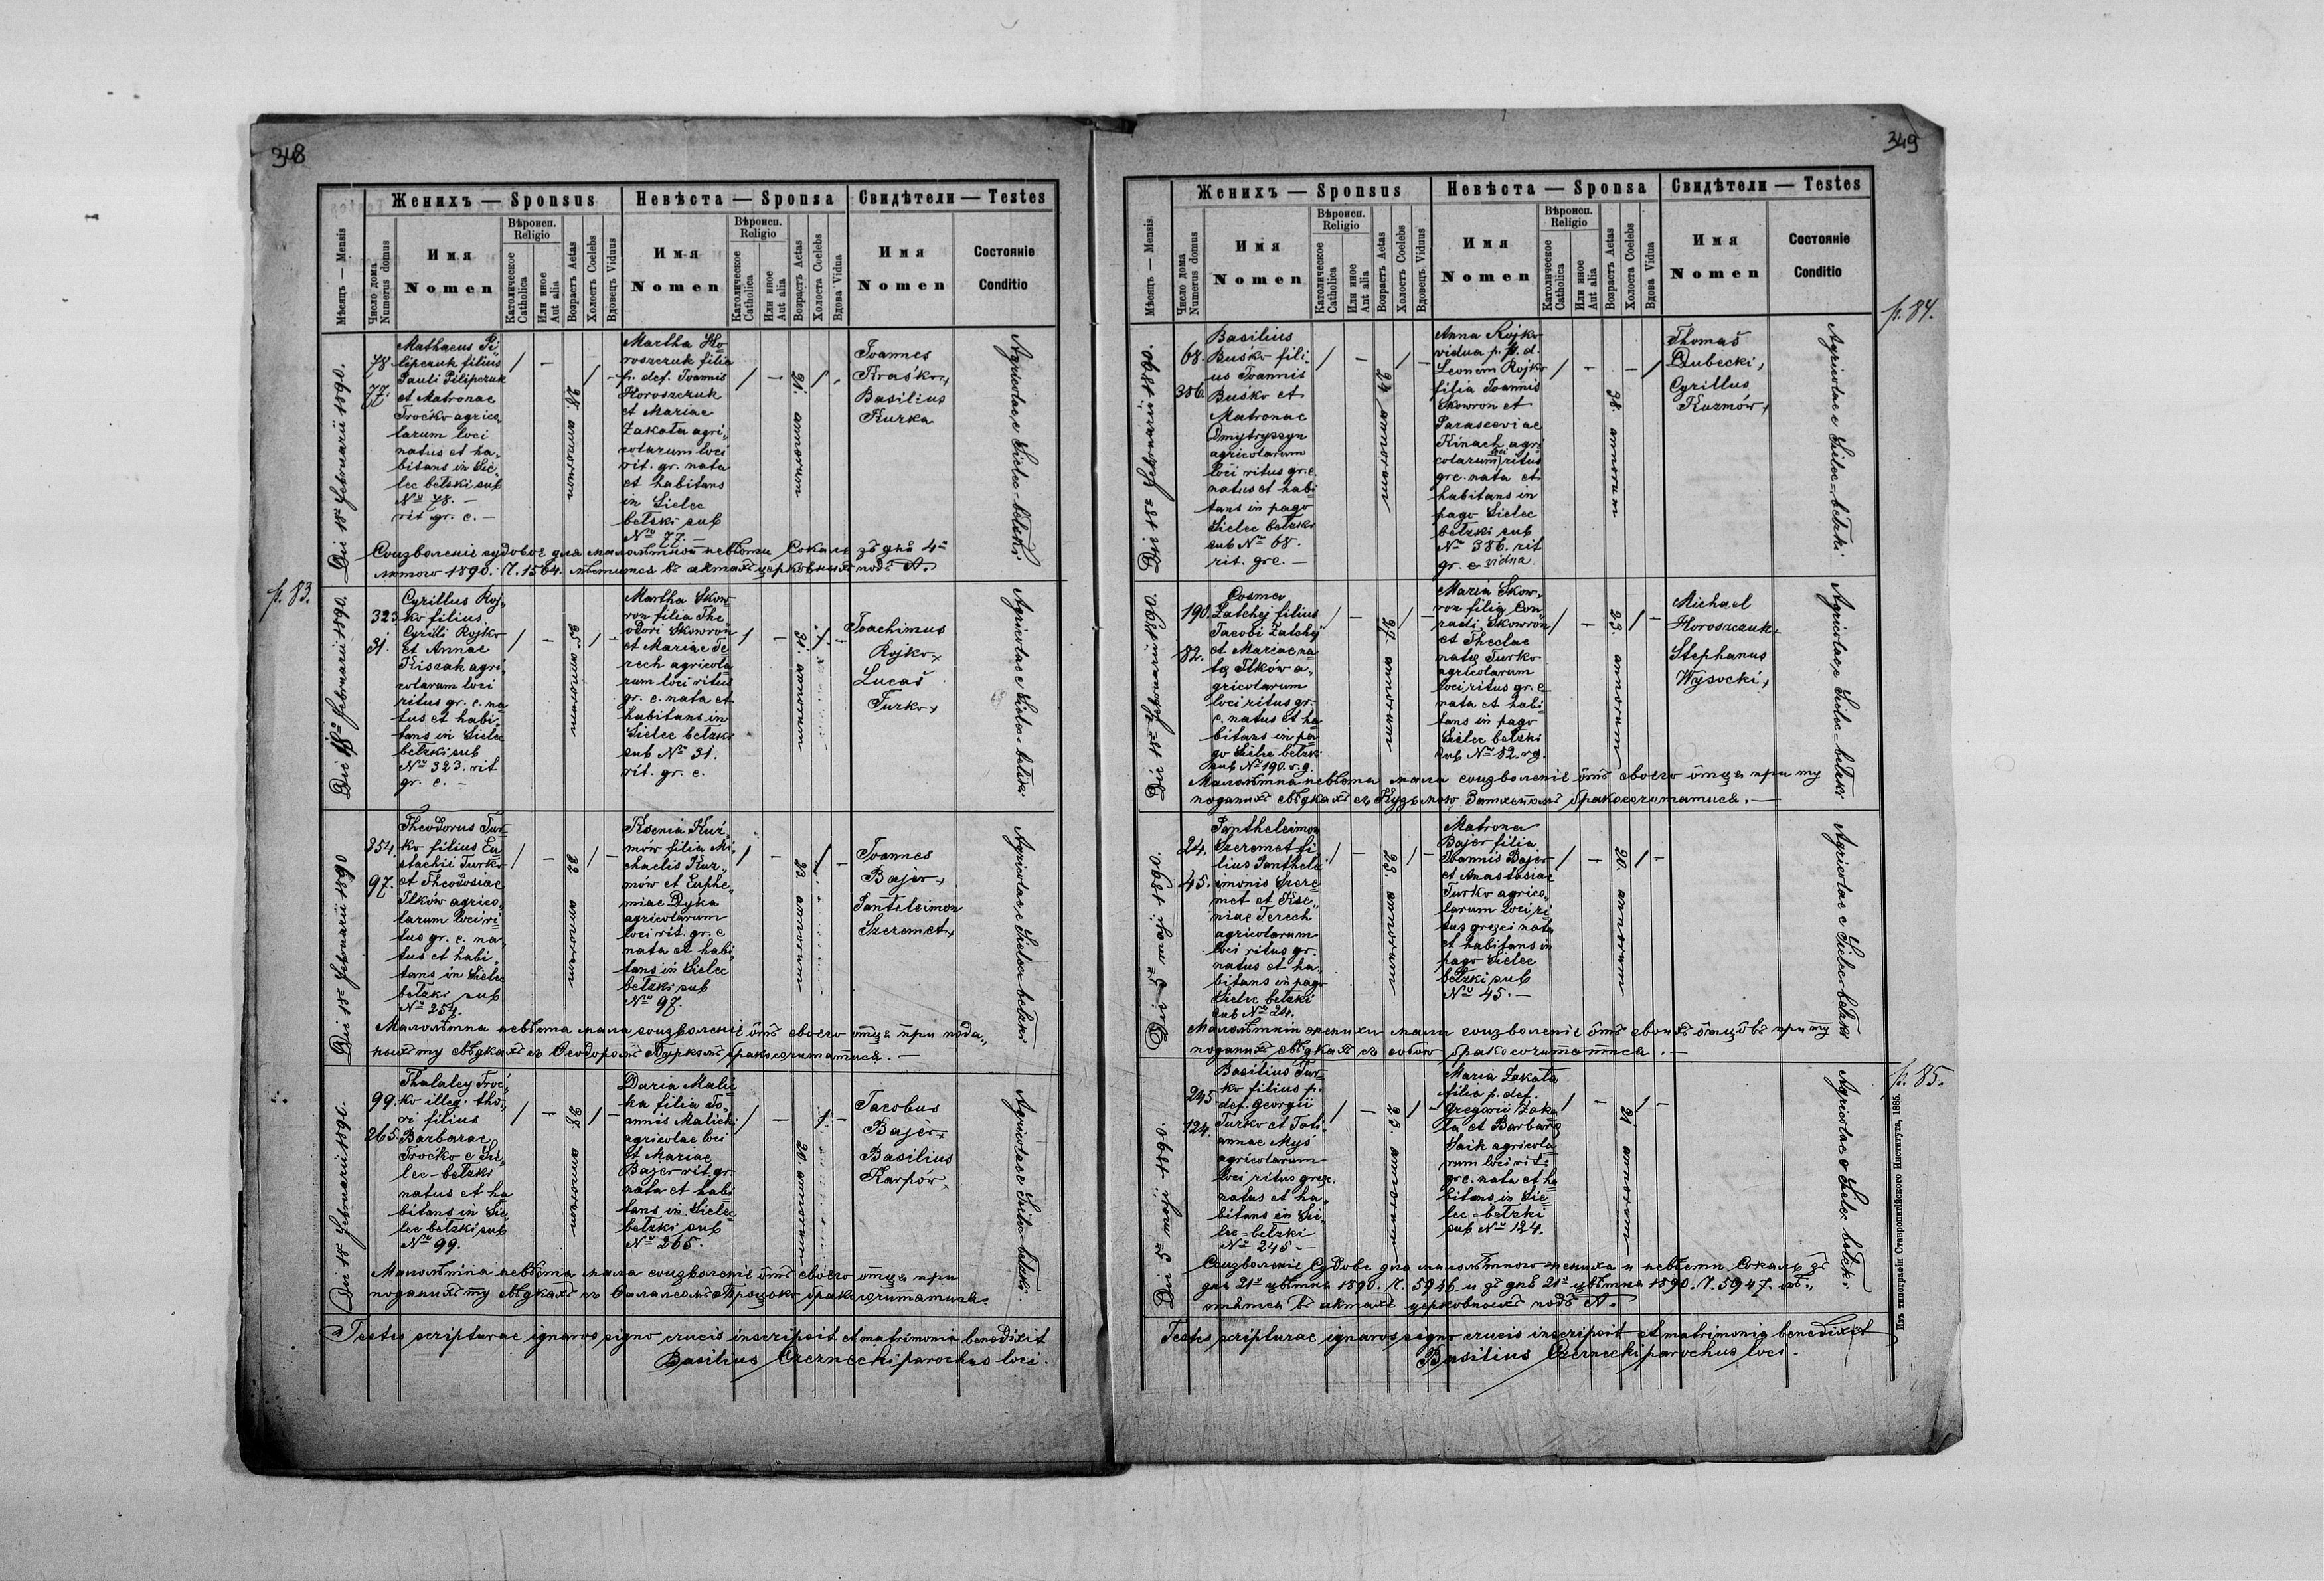 348
Женихъ — Sponsus
Невѣста — Sponsa
Свидѣтели — Testes
Мѣсяцъ — Mensis
Число дома
Numerus domus
Имя
Nomen
Вѣроисп.
Religio
Католическое
Catholica
Или иное
Aut alia
Возрастъ Aetas
Холостъ Coelebs
Вдовецъ Viduus
Имя
Nomen
Вѣроисп.
Religio
Католическое
Catholica
Или иное
Aut alia
Возрастъ Aetas
Холоста Coelebs
Вдова Vidua
Имя
Nomen
Состояніе
Conditio
Die 18ª Februarii 1890.
78.
77.
Mathaeus Pi-
lipczuk filius
Pauli Pilipczuk
et Matronae
Troćko agrico
larum loci
natus et ha,
bitans in Sie,
lec bełzki sub
Nº 78. –
rit gr. c. –
28. annorum
Martha Ho-
roszczuk filia
p. def. Joannis
Horoszczuk
et Mariae
Zakała agri,
colarum loci
rit. gr. nata
et habitans
in Sielec
bełzki sub
Nº 77. –
21. annorum
Joannes
Kraśko+
Basilius
Kurka
Agricolae e Sielec-bełzki
Соизволеніе судовое для малолѣтной невѣсты Сокаль зъ днѣ 4º
лютого 1890. Л. 1564. мѣститса въ актахъ церковныхъ подъ А.
p. 83.
Die 18ª Februarii 1890.
323
31.
Cyrillus Roj,
ko filius
Cyrili Rojko
et Annae
Kiszak agri,
colarum loci
ritus gr. c. na
tus et habi,
tans in Sielec
bełzki sub
Nº 323. rit
gr. c. –
25 annorum
Martha Skow-
ron filia The
odori Skowron
et Mariae Te-
rech agricola
rum loci ritus
gr. c. nata et
habitans in
Sielec bełzki
sub Nº 31.
rit. gr. c.
31. annorum
Joachimus
Rojko+
Lucaś
Turko+
Agricolae e Sielec-bełzki
Die 18ª Februarii 1890
254.
97.
Theodorus Tur-
ko filius Eu
stachii Turko
et Theodosiae
Ilków agrico,
larum loci ri-
tus gr. c. na,
tus et habi,
tans in Sielec
bełzki sub
Nº 254.
22 annorum
Ksenia Kuź,
mów filia Mi
chaelis Kuz,
mów et Euphe,
miae Dyka
agricolarum
loci rit. gr. c
nata et habi
tans in Sielec
bełzki sub
Nº 97.
22 annorum
Joannes
Bajer+
Panteleimon
Szeremet+
Agricolae e Sielec-bełzki
Малолѣтна невѣста мала соизволеніе ôтъ своего отца при пода,
ныхъ ту свѣдкахъ съ Ѳеодоромъ Туркомъ бракосочитатися. –
Die 18 Februarii 1890.
99.
265.
Thalaley Troć,
ko illeg. tho,
ri filius
Barbarae
Troćko e Sie,
lec-bełzki
natus et ha
bitans in Sie,
lec bełzki sub
Nº 99.
28. annorum
Daria Malic
ka filia Jo-
annis Malicki
agricolae loci
et Mariae
Bajer rit. gr
nata et habi
tans in Sielec
bełzki sub
Nº 265.
20. annorum
Jacobus
Bajer+
Basilius
Karpór+
Agricolae e Sielec-bełzki.
Малолѣтна невѣста мала соизволеніе ôтъ своего отца при
поданыхъ ту свѣдкахъ съ Ѳалалеомъ Троцько бракосочитатися.
Testes scripturae ignaros signo crucis inscripsit et matrimonia benedixit
Basilius Czernecki parochus loci.
349
Женихъ — Sponsus
Невѣста — Sponsa
Свидѣтели — Testes
Мѣсяцъ — Mensis
Число дома
Numerus domus
Имя
Nomen
Вѣроисп.
Religio
Католическое
Catholica
Или иное
Aut alia
Возрастъ Aetas
Холостъ Coelebs
Вдовецъ Viduus
Имя
Nomen
Вѣроисп.
Religio
Католическое
Catholica
Или иное
Aut alia
Возрастъ Aetas
Холоста Coelebs
Вдова Vidua
Имя
Nomen
Состояніе
Conditio
p. 84.
Die 18ª Februarii 1890.
68.
386.
Basilius
Busko fili,
us Joannis
Busko et
Matronae
Dmytryszyn
agricolarum
loci ritus gr. c.
natus et habi
tans in pago
Sielec bełzki
sub Nº 68.
rit. gr c. –
24 annorum
Anna Rojko
vidua p. p. d.
Leonem Rojko
filia Joannis
Skowron et
Parasceviae
Kinach agri
colarum loci ritus
gr c. nata et
habitans in
pago Sielec
bełzki sub
Nº 386. rit
gr. c vidua.
28. annorum
Thomaś
Dubecki+
Cyrillus
Kuzmów+
Agricolae e Sielec-bełzki
Die 18ª Februarii 1890.
190.
82.
Cosma
Zatchej filius
Jacobi Zatchej
et Mariae na
tę Ilków a,
gricolarum
loci ritus gr.
c. natus et ha
bitans in pa
go Sielec bełzki
sub Nº 190. r. g.
27. annorum
Maria Skow,
ron filia Con,
radi Skowron
et Theclae
natę Turko
agricolarum
loci ritus gr. c
nata et habi-
tans in pago
Sielec bełzki
sub Nº 82. r g.
23. annorum
Michael
Horoszczuk+
Stephanus
Wysocki+
Agricolae e Sielec-bełzki
Малолѣтна невѣста мала соизволеніе ôтъ своего ôтца при ту
поданыхъ свѣдкахъ съ Кузьмою Затхеемъ бракосочитатися. –
Die 5ª maji 1890.
24.
45.
Pantheleimon
Szeremet fi
lius Panthele
imonis Szere
met et Kse,
niae Terech
agricolarum
loci ritus gr.
natus et ha,
bitans in pago
Sielec bełzki
sub Nº 24.
23. annorum
Matrona
Bajer filia
Joannis Bajer
et Anastasiae
Turko agrico,
larum loci ri
tus gr c ci nata
et habitans in
pago Sielec
bełzki sub
Nº 45. –
20. annorum
Agricolae e Sielec-bełzki
Малолѣтніи женихи мали соизволеніе ôтъ своихъ ôтцôвъ при ту
поданыхъ свѣдкахъ съ собою бракосочитатися. –
p. 85.
Die 5ª maji 1890.
245
124.
Basilius Tur-
ko filius p.
def. Georgii
Turko et Tati-
annae Myś
agricolarum
loci ritus gr c.
natus et ha,
bitans in Sie,
lec-bełzki
Nº 245 –
23. annorum
Maria Zakała
filia p. def.
Gregorii Zaka
ła et Barbarę
Saik agricola
rum loci rit:
gr c. nata et ha
bitans in Sie
lec-bełzki
sub Nº 124.
21 annorum
Agricolae e Sielec bełzki
Соизволеніе Судове для малолѣтного жениха и невѣсты Сокаль зъ
дня 21º цвѣтня 1890. Л. 5946 и зъ днѣ 21º цвѣтня 1890. Л. 5947. мѣ,
стятса въ актахъ церковныхъ подъ А.
Testes scripturae ignaros signo crucis inscripsit et matrimonia benedixit
Basilius Czernecki parochus loci. –
Изъ типографіи Ставропигійского Института, 1885.